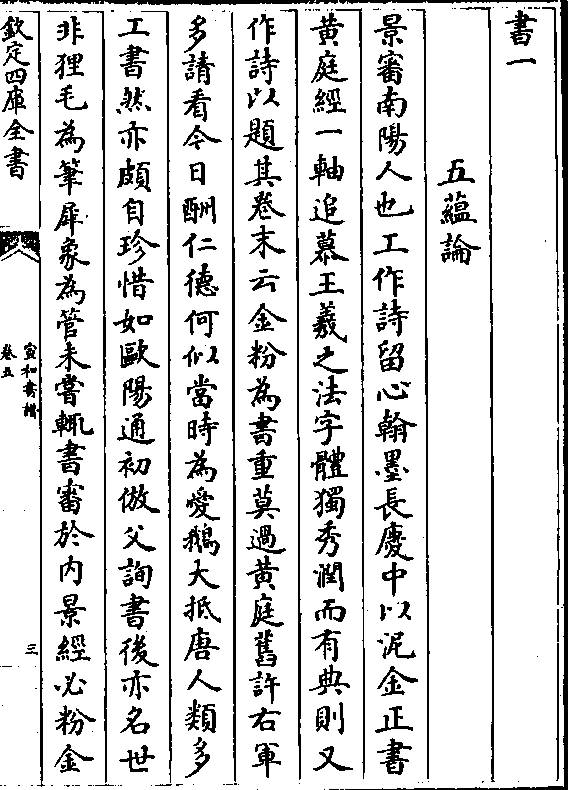 書一
五蘊論
景審南陽人也工作詩留心翰墨長慶中以泥金正書
黄庭經一軸追慕王羲之法字體獨秀潤而有典則又
作詩以題其卷末云金粉為書重莫過黄庭舊許右軍
多請看今日酬仁德何似當時為愛鵝大抵唐人類多
工書然亦頗自珍惜如歐陽通初倣父詢書後亦名世
非狸毛為筆犀象為管未嘗輒書審於内景經必粉金
欽定四庫全書
宣和書譜
卷五
三